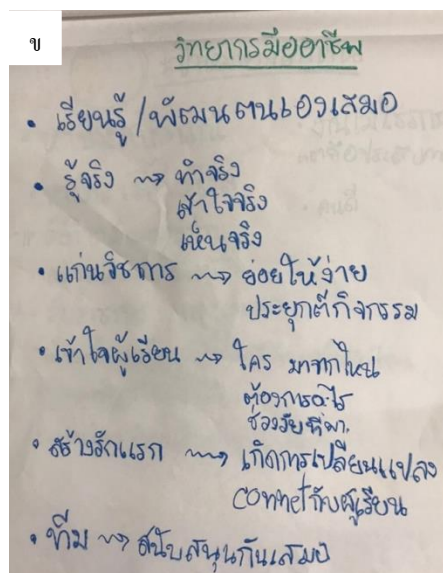 ข
วิทยากรมืออาชีพ
• เรียนรู้/พัฒนตนเองเสมอ
• รู้จริง ~> ทำจริง
เข้าใจจริง
เห็นจริง
• แก่นวิชาการ ~> ย่อยให้ง่าย
ประยุกต์กิจกรรม
• เข้าใจผู้เรียน ~> ใคร มาจากไหน
ต้องการอะไร
ช่วงวัยที่มา
• สร้างรักแรก ~> เกิดการเปลี่ยนแปลง
connetกับผู้เรียน
• ทีม ~> สนับสนุนกันเสมอ